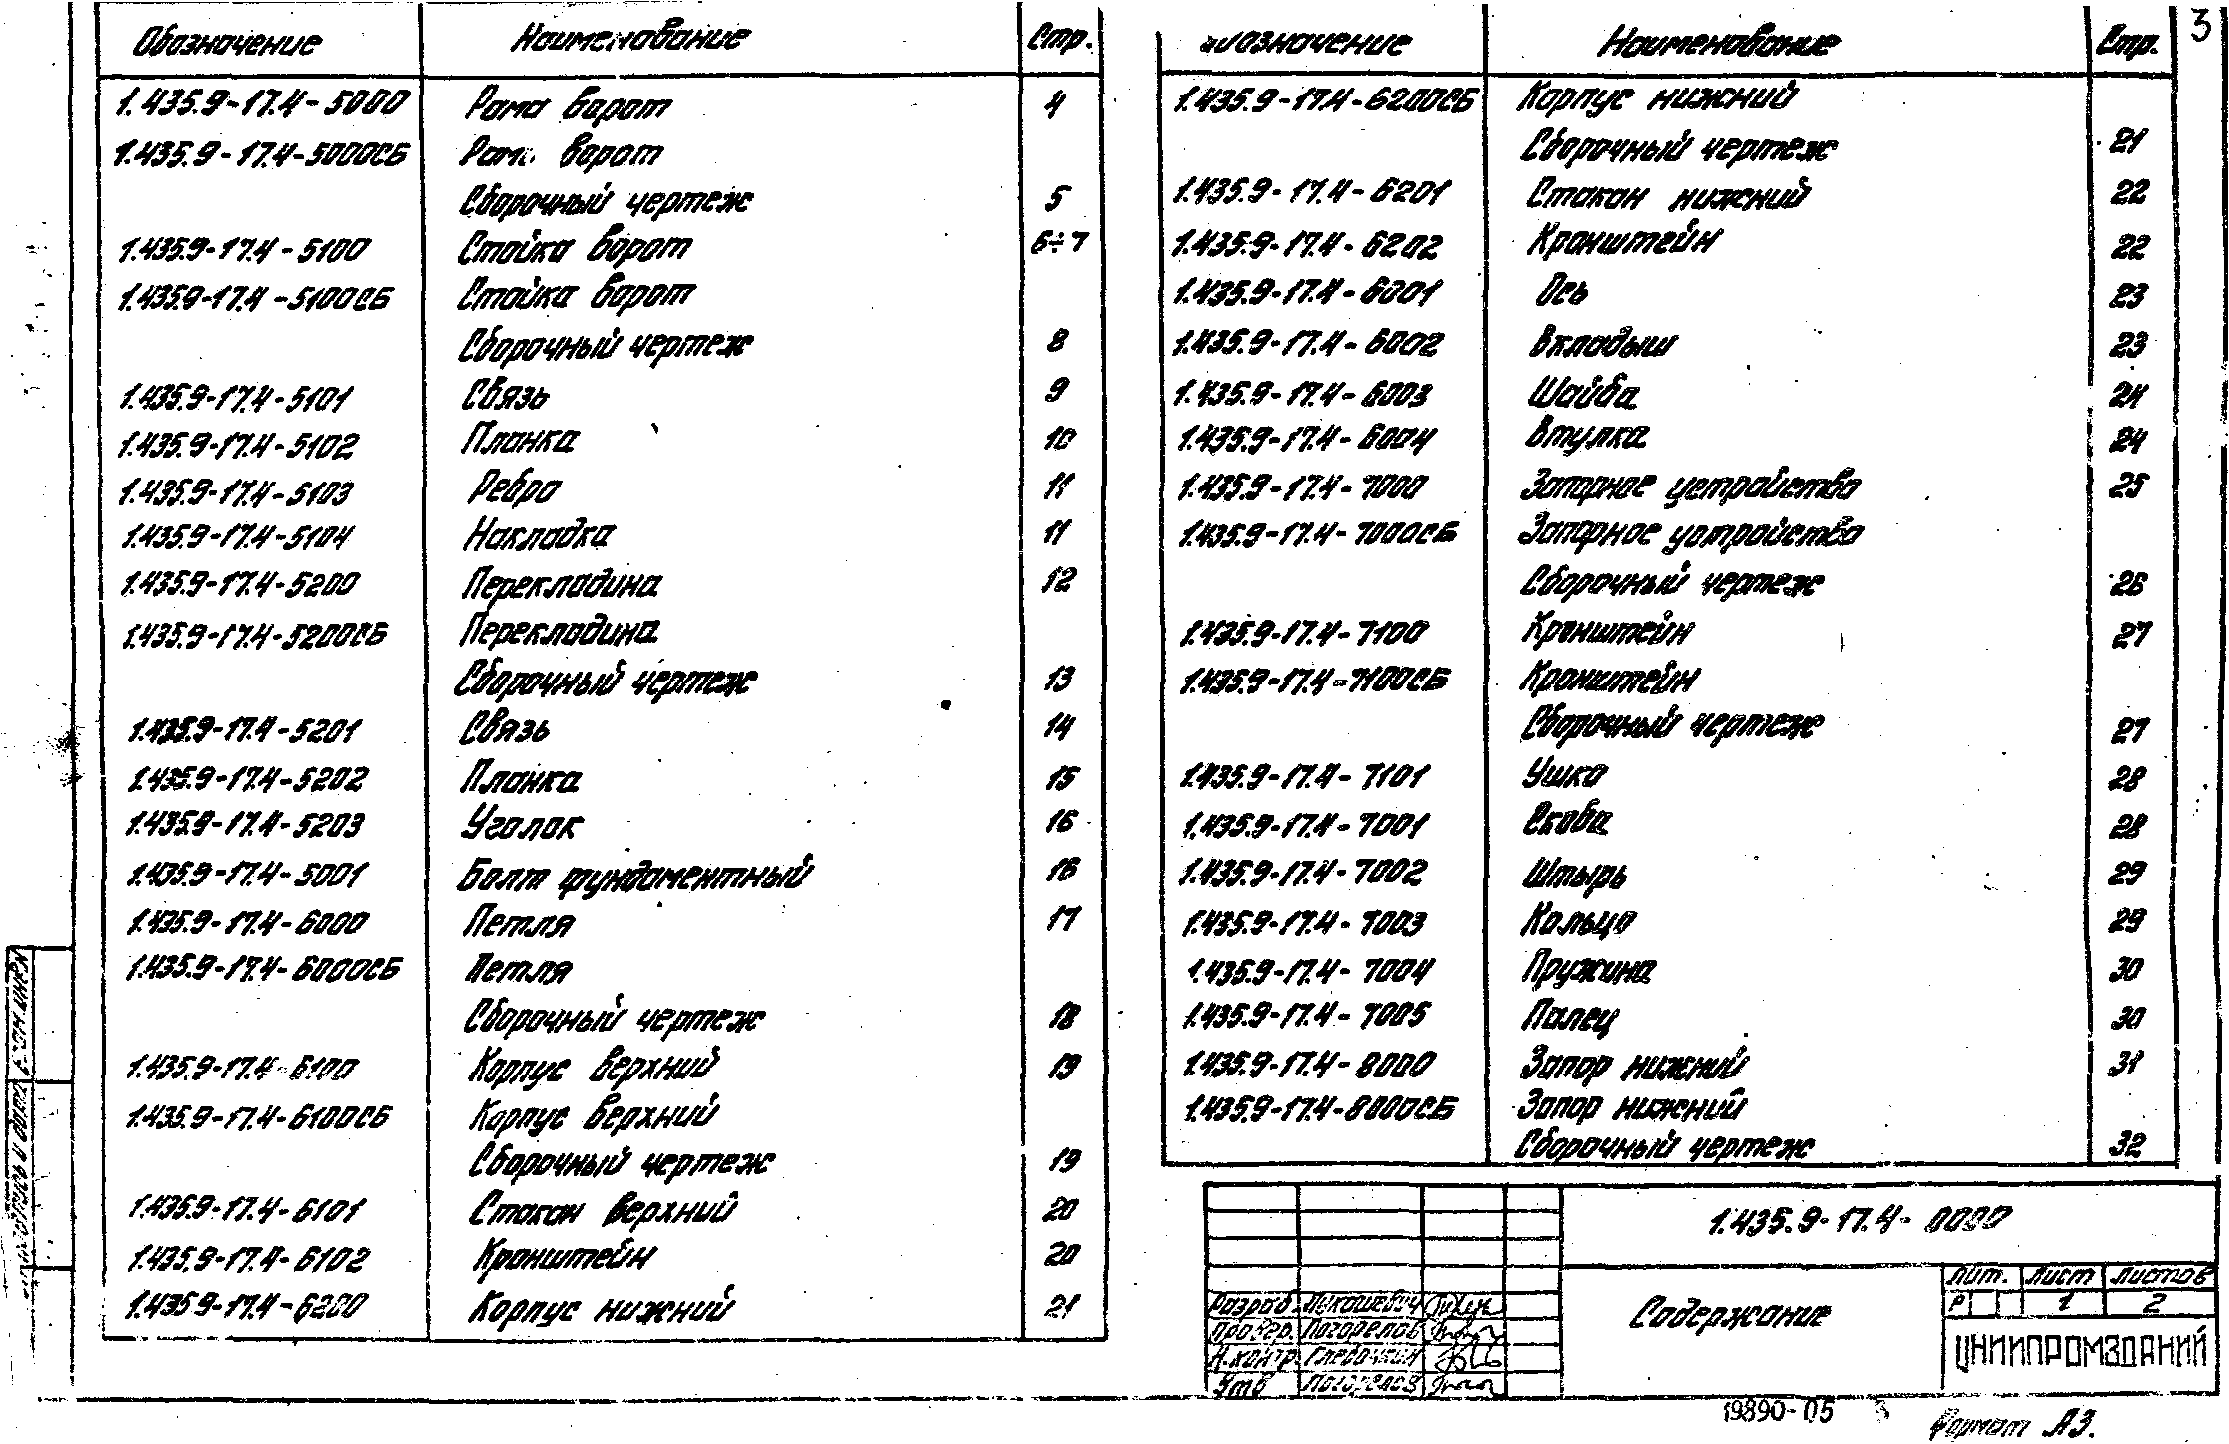 3
Обозначение Наименование Стр.
1.435.9-17.4-5000 Рама ворот 4
1.435.9-17.4-5000СБ Рама ворот
Сборочный чертеж 5
1.435.9-17.4-5100 Стойка ворот 6÷7
1.435.9-17.4-5100СБ Стойка ворот
Сборочный чертеж 8
1.435.9-17.4-5101 Связь 9
1.435.9-17.4-5102 Планка 10
1.435.9-17.4-5103 Ребро 11
1.435.9-17.4-5104 Накладка 11
1.435.9-17.4-5200 Перекладина 12
1.435.9-17.4-5200СБ Перекладина
Сборочный чертеж 13
1.435.9-17.4-5201 Связь 14
1.435.9-17.4-5202 Планка 15
1.435.9-17.4-5203 Уголок 16
1.435.9-17.4-5001 Болт фундаментный 16
1.435.9-17.4-6000 Петля 17
1.435.9-17.4-6000СБ Петля
Сборочный чертеж 18
1.435.9-17.4-6100 Корпус верхний 19
1.435.9-17.4-6100СБ Корпус верхний
Сборочный чертеж 19
1.435.9-17.4-6101 Стакан верхний 20
1.435.9-17.4-6102 Кронштейн 20
1.435.9-17.4-6200 Корпус нижний 21
Обозначение Наименование Стр.
1.435.9-17.4-6200СБ Корпус нижний
Сборочный чертеж 21
1.435.9-17.4-6201 Стакан нижний 22
1.435.9-17.4-6202 Кронштейн 22
1.435.9-17.4-6001 Ось 23
1.435.9-17.4-6002 Вкладыш 23
1.435.9-17.4-6003 Шайба 24
1.435.9-17.4-6004 Втулка 24
1.435.9-17.4-7000 Запорное устройство 25
1.435.9-17.4-7000СБ Запорное устройство
Сборочный чертеж 26
1.435.9-17.4-7100 Кронштейн 27
1.435.9-17.4-7100СБ Кронштейн
Сборочный чертеж 27
1.435.9-17.4-7101 Ушко 28
1.435.9-17.4-7001 Скоба 28
1.435.9-17.4-7002 Штырь 29
1.435.9-17.4-7003 Кольцо 29
1.435.9-17.4-7004 Пружина 30
1.435.9-17.4-7005 Палец 30
1.435.9-17.4-8000 Запор нижний 31
1.435.9-17.4-8000СБ Запор нижний
Сборочный чертеж 32
1.435.9-17.4-0000
Содержание
Лит. Лист Листов
Р 1 2
ЦНИИПРОМЗДАНИЙ
Разраб. Лукашевич
Провер. Погорелов
Н.контр. Глебочкин
Утв Погорелов
19890-05
Формат А3.